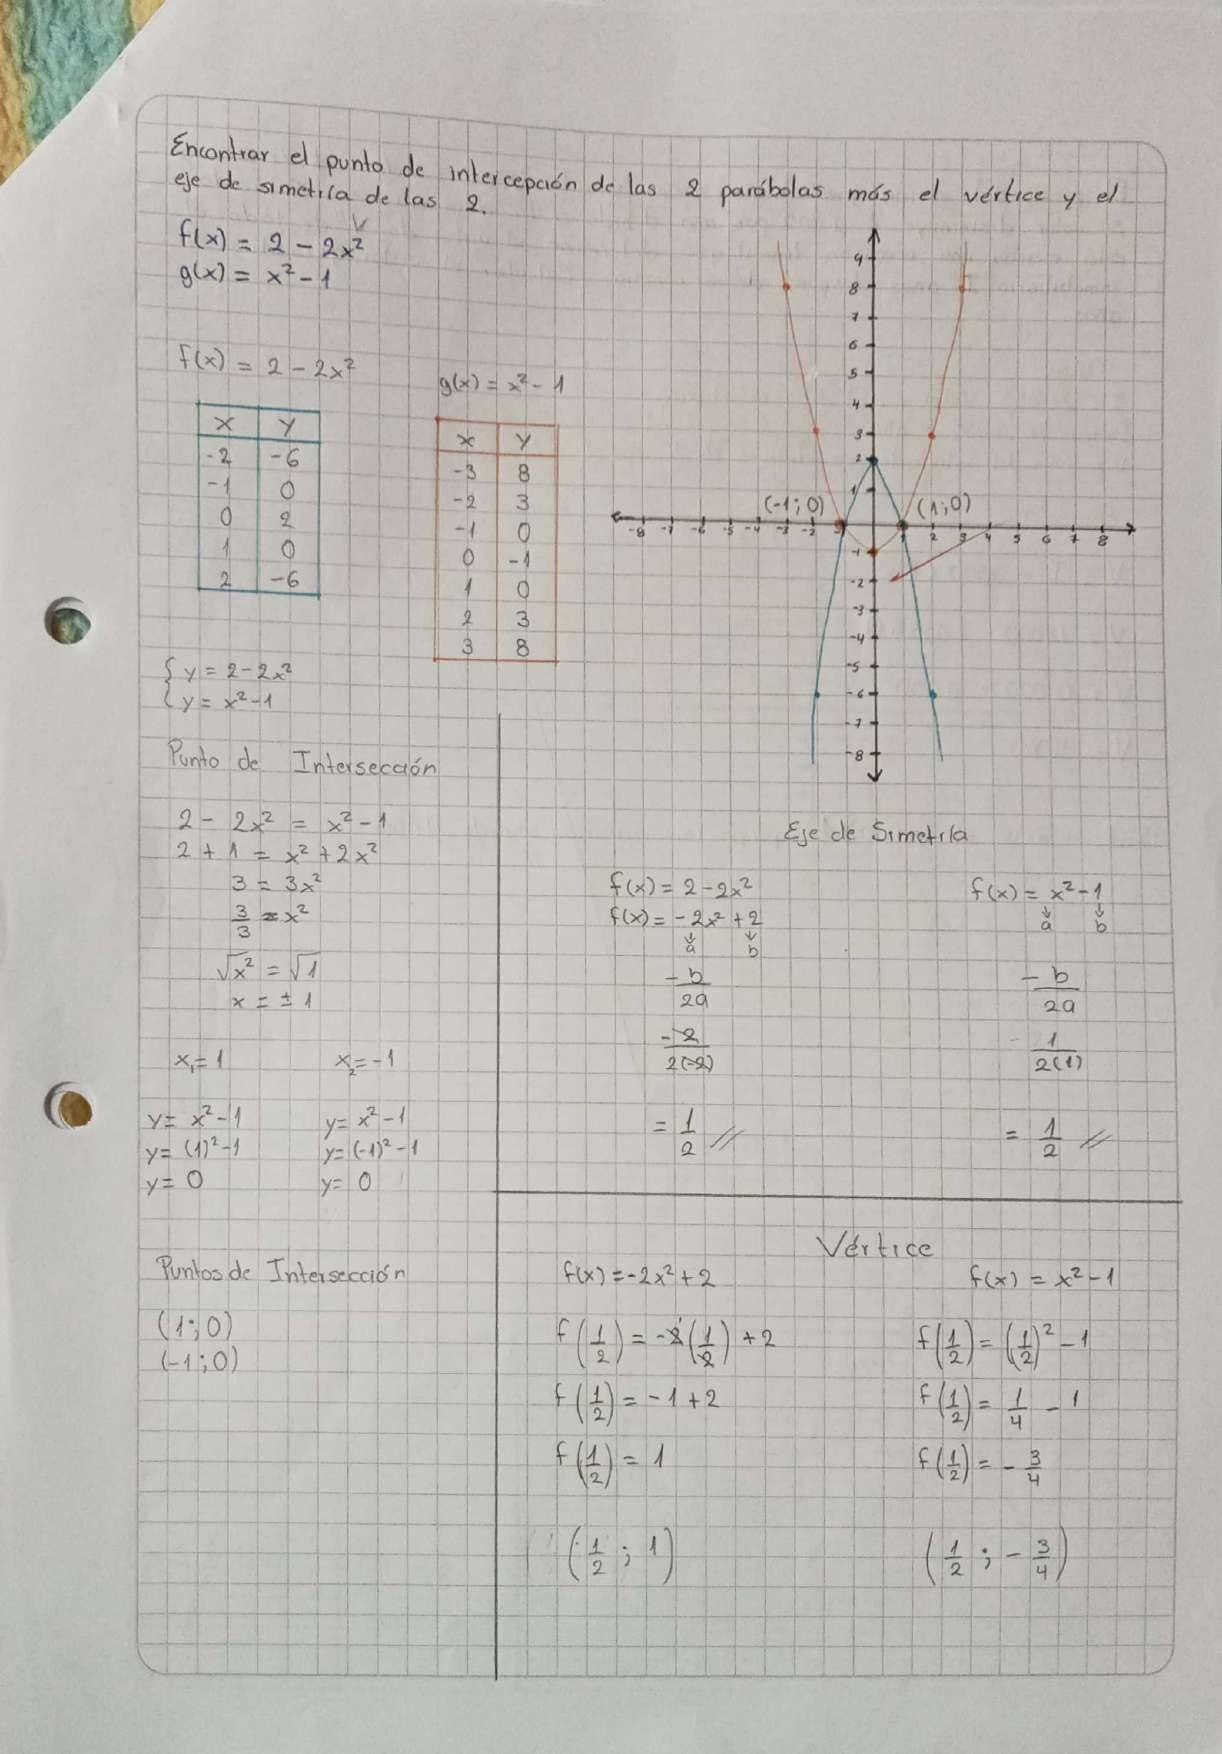 Encontrar el punto de intercepción de las 2 parábolas más el vértice y el
eje de simetría de las 2.
f(x) = 2 - 2x²
g(x) = x² - 1
f(x) = 2 - 2x²
x y
-2 -6
-1 0
0 2
1 0
2 -6
g(x) = x² - 1
x y
-3 8
-2 3
-1 0
0 -1
1 0
2 3
3 8
9
8
7
6
5
4
3
2
1
(-1;0) (1;0)
-8 -7 -6 -5 -4 -3 -2 1 2 3 4 5 6 7 8
-1
-2
-3
-4
-5
-6
-7
-8
{ y = 2 - 2x²
y = x² - 1
Punto de Intersección
2 - 2x² = x² - 1
2 + 1 = x² + 2x²
3 = 3x²
3/3 = x²
√x² = √1
x = ± 1
x₁ = 1 x₂ = -1
y = x² - 1 y = x² - 1
y = (1)² - 1 y = (-1)² - 1
y = 0 y = 0
Puntos de Intersección
(1;0)
(-1;0)
Eje de Simetría
f(x) = 2 - 2x²
f(x) = -2x² + 2
a b
-b/2a
-2/2(-2)
= 1/2 //
f(x) = x² - 1
a b
-b/2a
1/2(1)
= 1/2 //
Vértice
f(x) = -2x² + 2
f(1/2) = -2(1/2) + 2
f(1/2) = -1 + 2
f(1/2) = 1
(1/2 ; 1)
f(x) = x² - 1
f(1/2) = (1/2)² - 1
f(1/2) = 1/4 - 1
f(1/2) = - 3/4
(1/2 ; - 3/4)